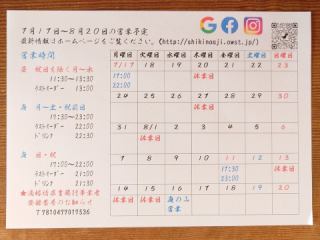 7月17日～8月20日の営業予定
最新情報はホームページをご覧ください。(http://shikinaoji.owst.jp/)
営業時間
昼 祝日を除く月～水
11:30～13:30
ラストオーダー 13:00
夜 月～土・祝前日
17:00～22:00
ラストオーダー 21:00
ドリンク 21:30
夜 日・祝
ラストオーダー 21:00
ドリンク 21:30
月曜日 火曜日 水曜日 木曜日 金曜日 土曜日 日曜日
7/17 18 19 20 21 22 23
17:00
22:00
休業日
24 25 26 27 28 29 30
休業日
31 8/1 2 3 4 5 6
休業日 休業日
7 8 9 10 11 12 13
休業日 17:00
23:00 休業日
14 15 16 17 18 19 20
休業日 休業日 夜のみ
営業 休業日
T7810477017536